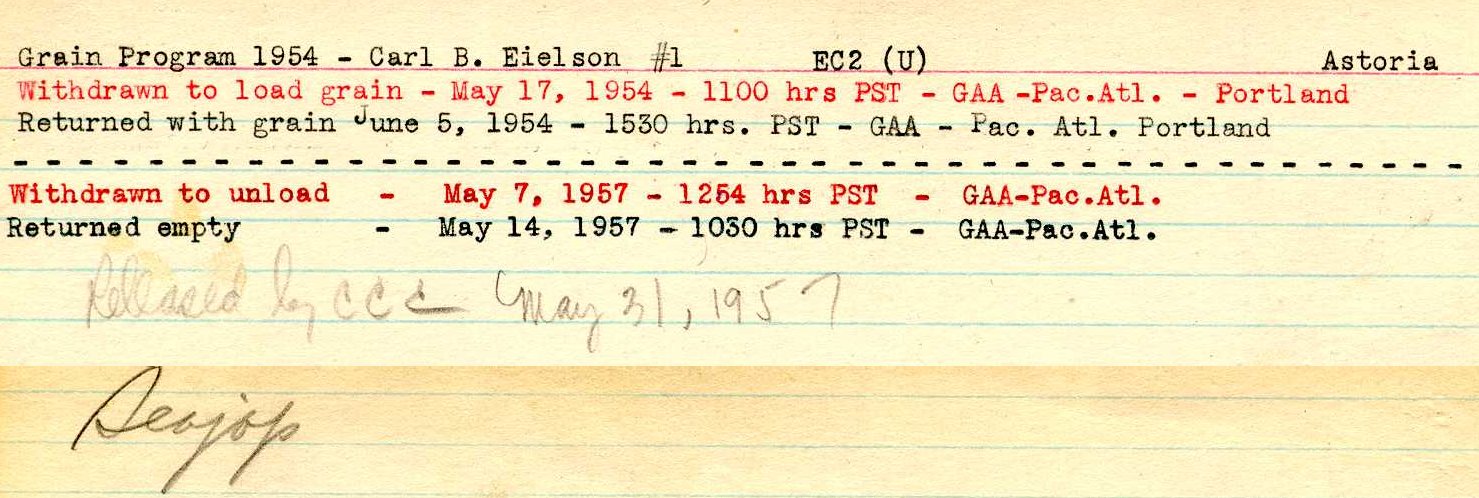 Grain Program 1954 - Carl B. Eielson #1 EC2 (U) Astoria
Withdrawn to load grain - May 17, 1954 - 1100 hrs PST - GAA -Pac.Atl. - Portland
Returned with grain June 5, 1954 - 1530 hrs. PST - GAA - Pac. Atl. Portland
Withdrawn to unload - May 7, 1957 - 1254 hrs PST - GAA-Pac.Atl.
Returned empty - May 14, 1957 - 1030 hrs PST - GAA-Pac.Atl.
Released by CCC May 31, 1957